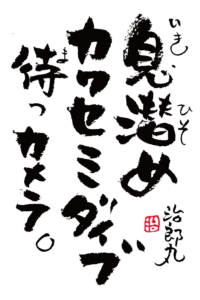 息潜め
いき ひそ
カワセミダイブ
待つカメラ。
ま
治郎丸
治